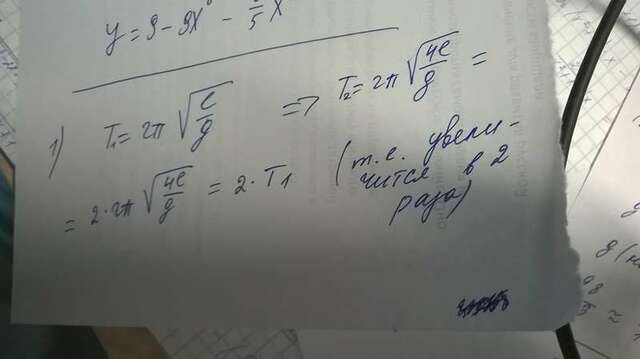 y = 9 - 9x⁸ - 6/5 x
1) T₁ = 2π √(ℓ/g) => T₂ = 2π √(4ℓ/g) =
= 2 · 2π √(4ℓ/g) = 2 · T1 (т.е. увели-
чится в 2
раза)